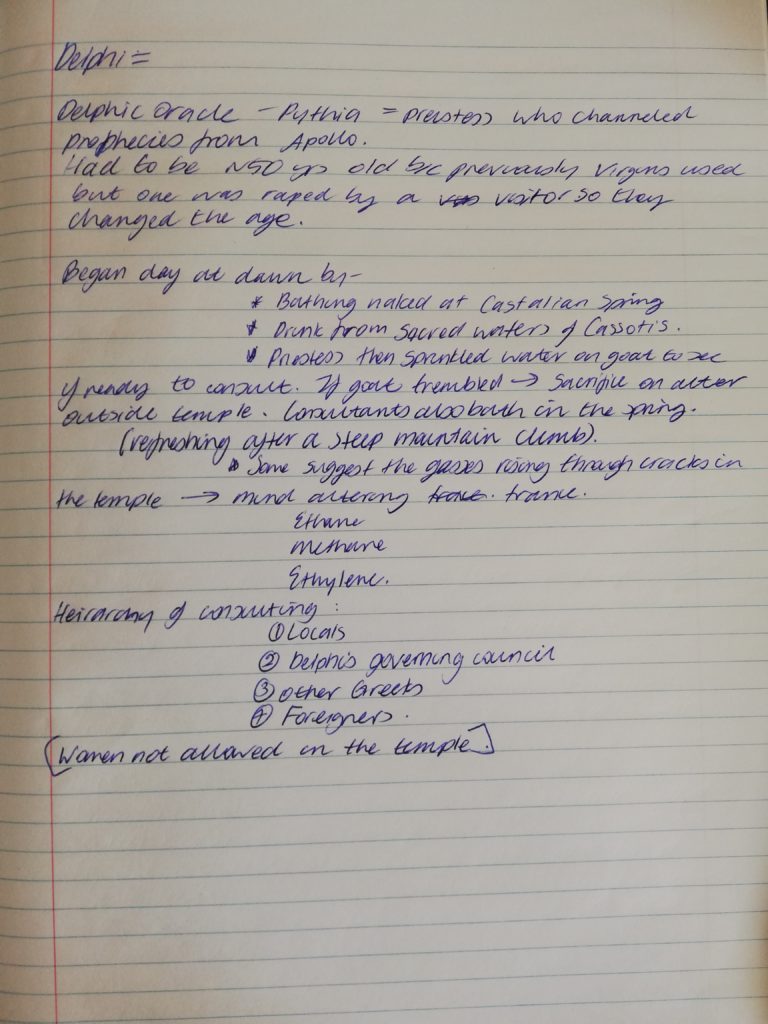 Delphi =
Delphic Oracle - Pythia = priestess who channeled
prophecies from Apollo.
Had to be ~50 yrs old bc previously virgins used
but one was raped by a visitor so they
changed the age.
Began day at dawn by -
* Bathing naked at Castalian Spring
* Drink from sacred waters of Cassotis.
* Priestess then sprinkled water on goat to see
if ready to consult. If goat trembled → sacrifice on alter
outside temple. Consultants also bath in the spring.
(refreshing after a steep mountain climb).
* Some suggest the gasses rising through cracks in
the temple → mind altering trance.
Ethane
Methane
Ethylene.
Heirarchy of consulting :
① Locals
② Delphi's governing council
③ Other Greeks
④ Foreigners.
[Women not allowed in the temple.]